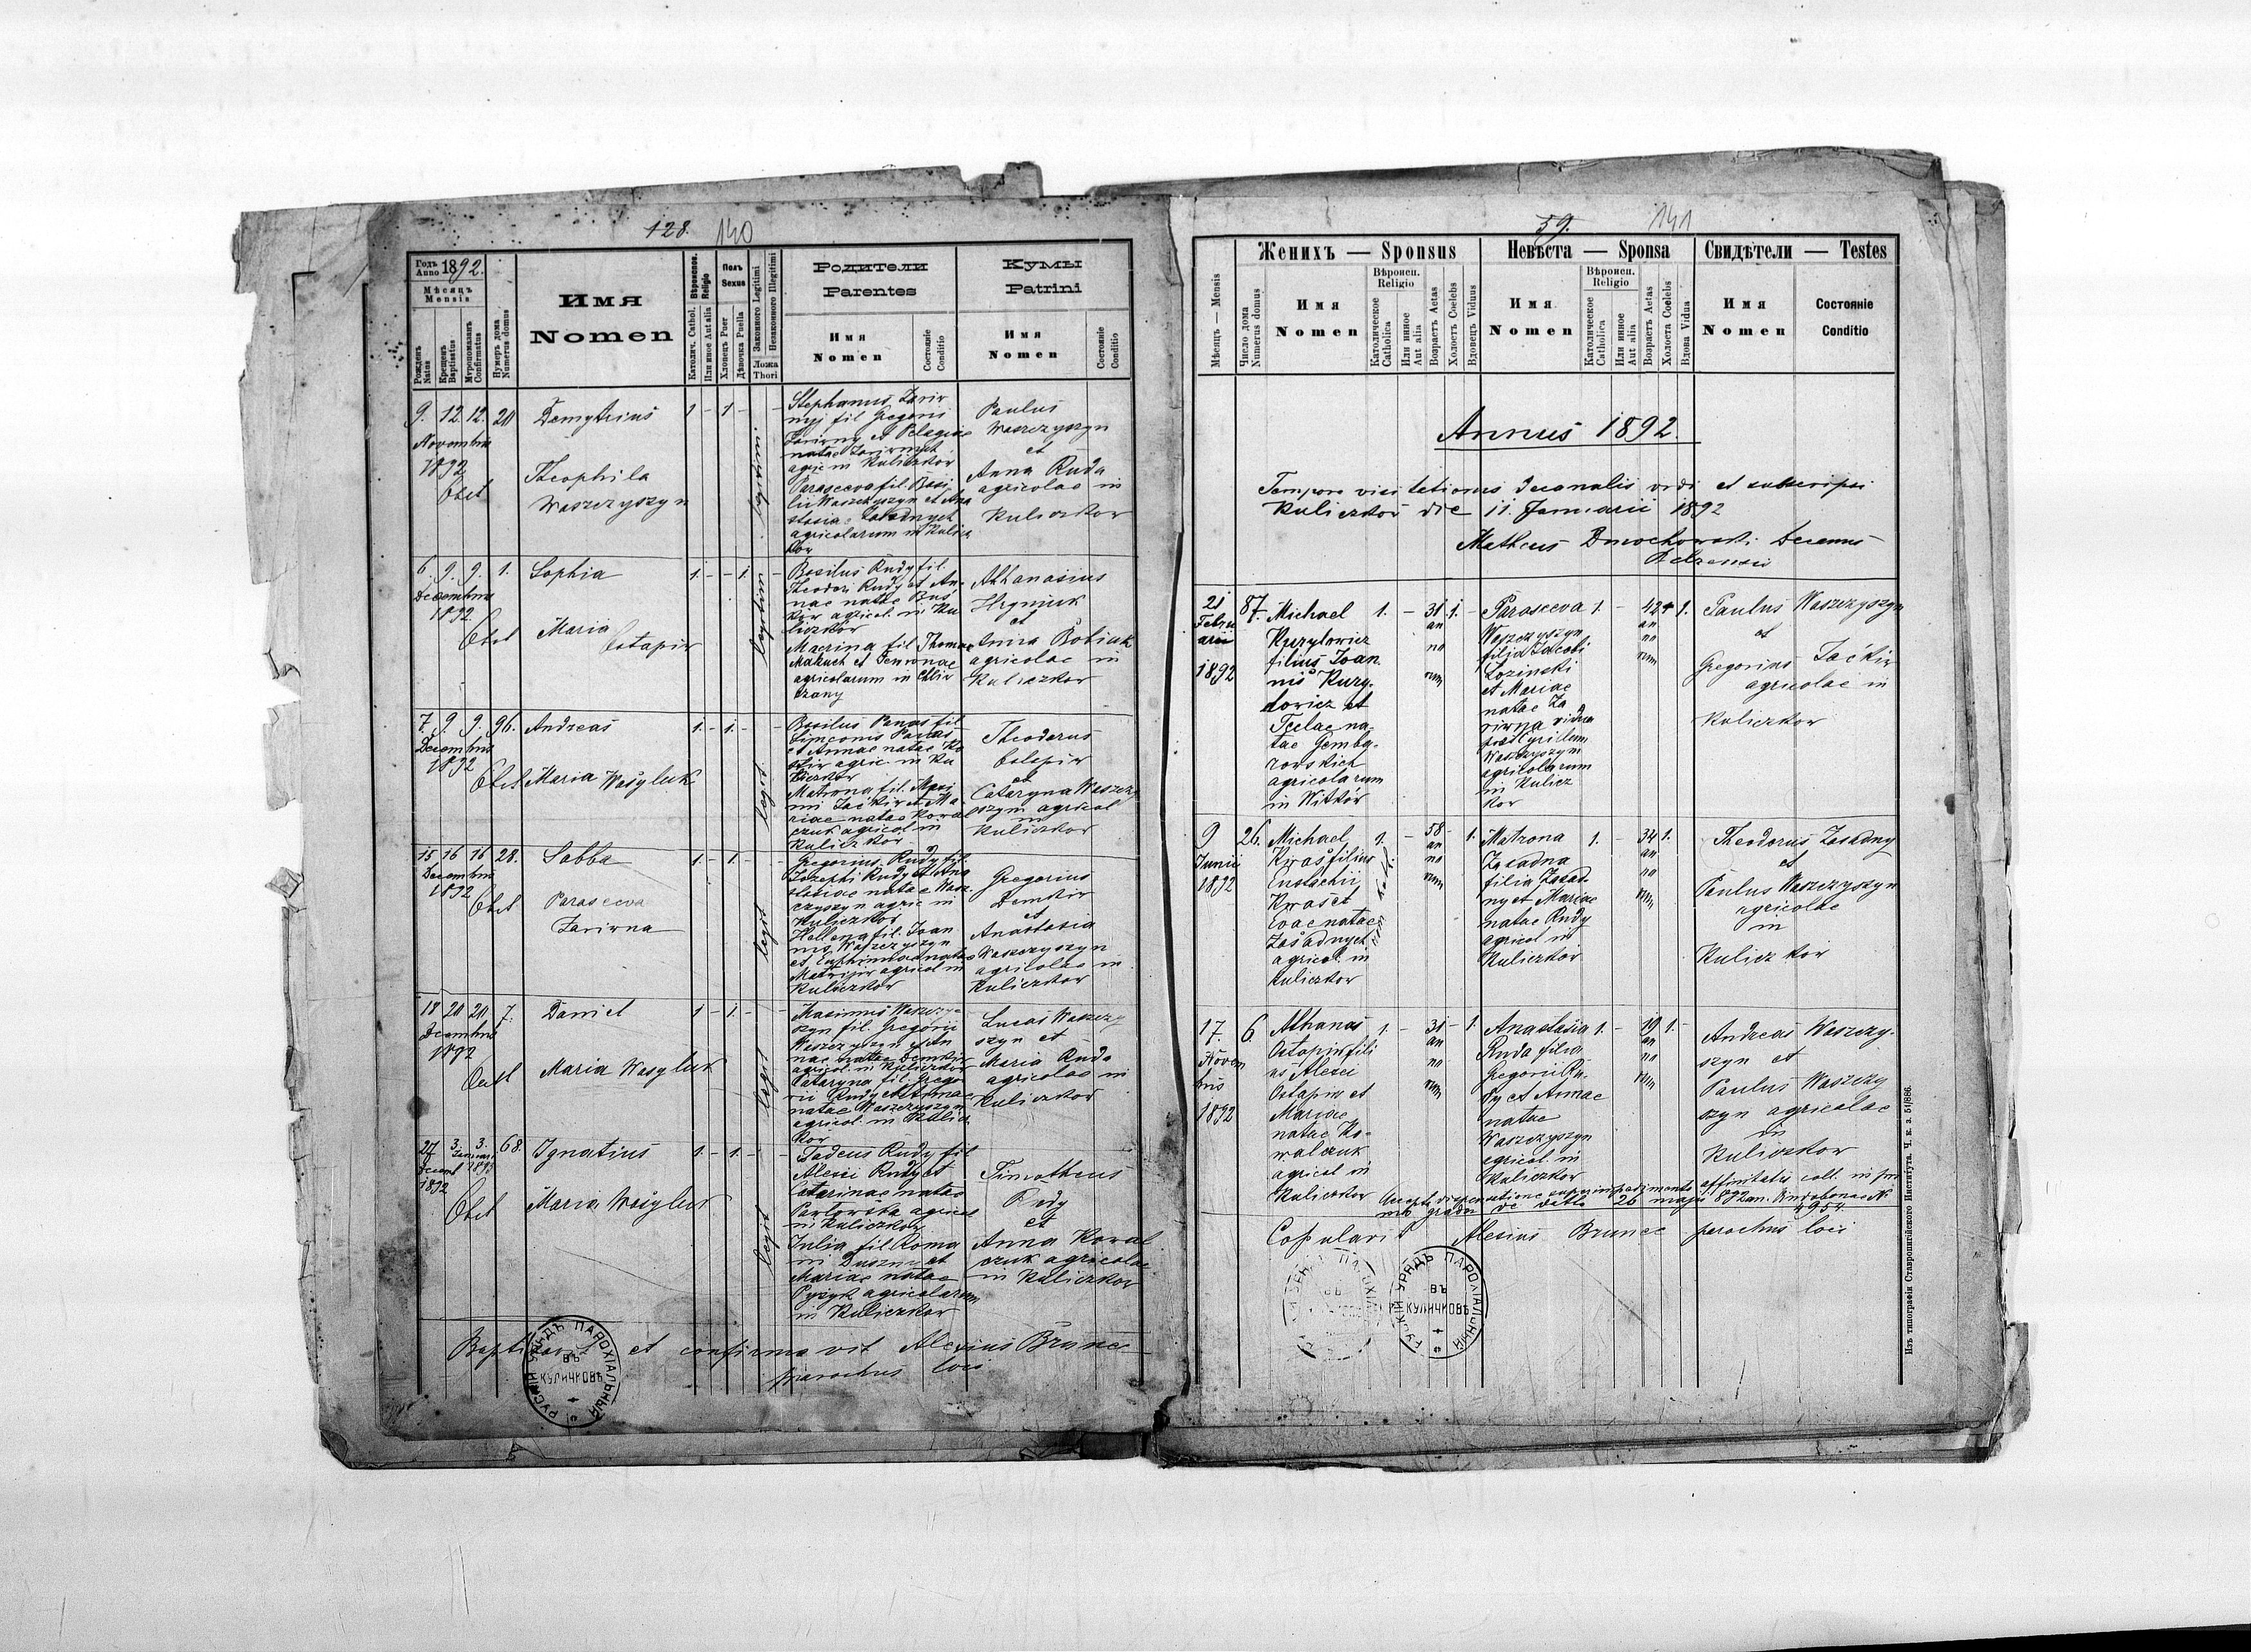 128. 140
Годъ Anno 1892.
Мѣсяцъ Mensis
Рожденъ Natus
Крещенъ Baptisatus
Мѵропомазанъ Confirmatus
Нумеръ дома Numerus domus
Имя
Nomen
Католич. Cathol. Вѣроиспов. Religio
Или иное Aut alia
Полъ Sexus
Хлопець Puer
Дѣвочка Puella
Законного Legitimi
Незаконного Illegitimi
Ложа Thori
Родители
Parentes
Имя
Nomen
Состояніе
Conditio
Кумы
Patrini
Имя
Nomen
Состояніе
Conditio
9. 12. 12. 20 Demytrius 1 - 1 -
Novembris
1892
Obst
Theophila
Waszczyszyn
legitimi
Stephanus Zariw
nyj fil Gregorii
Zariwny et Pelagiae
natae
agric in Kuliczkow
Parasceva fil. Basi
lii Waszczyszyn et Ana
stasiae Zasadnych
agricolarum in Kulicz
kow
Paulus
Waszczyszyn
et
Anna Ruda
agricolae in
Kuliczkow
6. 9. 9. 1. Sophia 1. - - 1.
Decembris
1892
Obst Maria
Ostapiw
legitimi
Basilius Rudy fil.
Theodori Rudy et An-
nae natae Bus
kiw agricol. in Ku
liczkow
Macrina fil Thomae
Makuch et
agricolarum in Chliw
czany
Athanasius
Hryniuk
et
Anna Bobiuk
agricolae in
Kuliczkow
7. 9. 9. 96. Andreas 1. - 1. -
Decembris
1892
Obst Maria Wasyluk
legit.
Basilius Panas fil
Simeonis Panas
et Annae natae Ko
agric. in Ku
liczkow
Matrona fil. Maxi
mi Jaćkiw et Ma
riae natae Kowal
czuk agricol in
Kuliczkow
Theodorus
Ostapiw
et
Cataryna Waszczy
szyn agricol
in
Kuliczkow
15 16 16 28. Sabba 1. - 1. -
Decembris
1892
Obst Parasceva
Zariwna
legit
Gregorius Rudy fil.
Josephi Rudy et Ana
stasiae natae Wasz
czyszyn agric in
Kuliczkow
Hellena fil. Joan
nis Waszczyszyn
et Euphimiae natae
agricol in
Kuliczkow
Gregorius
Demkiw
et
Anastasia
Waszczyszyn
agricolae in
Kuliczkow
18 20 20 7. Daniel 1 - 1. -
Decembris
1892
Obst Maria Wasyluk
legit
Maximus Waszczy-
szyn fil. Gregorii
Waszczyszyn et An
nae natae Demkiw
agricol. in Kuliczkow
Cataryna fil. Grego
rii Rudy et Annae
natae Waszczyszyn
agricol. in Kulicz
kow
Lucas Waszczy
szyn et
Maria Ruda
agricolae in
Kuliczkow
27 3. 3. 68. Ignatius 1. - 1. -
Decemb Januari
1892 1893
Obst Maria Wasyluk
legit
Tadeus Rudy fil
Alexii Rudy et
Catarinae natae
Pawlowska agricol
in Kuliczkow
Julia fil. Roma
ni Duszny et
Mariae natae
Pyzyk agricolarum
in Kuliczkow
Timotheus
Rudy
et
Anna Kowal
czuk agricolae
in Kuliczkow
Baptisavit et confirmavit Alexius Brunec
parochus loci
РУСКІЙ УРЯДЪ ПАРОХІАЛЬНЫЙ
ВЪ
КУЛИЧКОВѢ
59. 141
Мѣсяцъ — Mensis
Число дома
Numerus domus
Женихъ — Sponsus
Имя
Nomen
Вѣроисп.
Religio
Католическое
Catholica
Или инное
Aut alia
Возрастъ Aetas
Холостъ Coelebs
Вдовецъ Viduus
Невѣста — Sponsa
Имя
Nomen
Вѣроисп.
Religio
Католическое
Catholica
Или инное
Aut alia
Возрастъ Aetas
Холоста Coelebs
Вдова Vidua
Свидѣтели — Testes
Имя
Nomen
Состояніе
Conditio
Annus 1892.
Tempore visitationis decanalis vidi et subscripsi
Kuliczkow die 11. Januarii 1892
Matheus Decanus
Belzensis
21 87. Michael 1. - 31. 1. -
Febru
arii
1892
Kurylowicz
filius Joan
nis Kury-
lowicz et
Teclae na-
tae Gemba-
rowskich
agricolarum
in Witków
an
no
rum
Parasceva 1. - 42 1.
Waszczyszyn
filia Jacobi
Lozinski
et Mariae
natae Za
riwna vidua
post Cyrillum
Waszczyszyn
agricolarum
in Kulicz
kow
an
no
rum
Paulus Waszczyszyn
et
Gregorius Jaćkiw
agricolae in
Kuliczkow
9 26. Michael 1. - 58 - 1.
Junii
1892
Kwas filius
Eustachii
Kwas et
Evae natae
Zasadnych
agricol. in
Kuliczkow
an
no
rum
Matrona 1. - 34 1.
Zasadna
filia Zasad
ny et Mariae
natae Rudy
agricol in
Kuliczkow
an
no
rum
Theodorus Zasadny
et
Paulus Waszczyszyn
agricolae
in
Kuliczkow
17. 6. Athanas 1. - 31 - 1.
Novem
bris
1892
Ostapiw fili
us Alexii
Ostapiw et
Mariae
natae Ko-
walczuk
agricol in
Kuliczkow
an
no
rum
Anastasia 1. - 19 1. -
Ruda filia
Gregorii Ru-
dy et Annae
natae
Waszczyszyn
agricol. in
Kuliczkow
an
no
rum
Andreas Waszczy-
szyn et
Paulus Waszczy
szyn agricolae
in
Kuliczkow
dispensatione super impedimento affinitatis coll. in
gradu de 26 maji 892 N.
4954
Copulavit Alexius Brunec parochus loci
РУСКІЙ УРЯДЪ ПАРОХІАЛЬНЫЙ
ВЪ
КУЛИЧКОВѢ
Изъ типографіи Ставропигійского Института. Ч. к. з. 51/886.